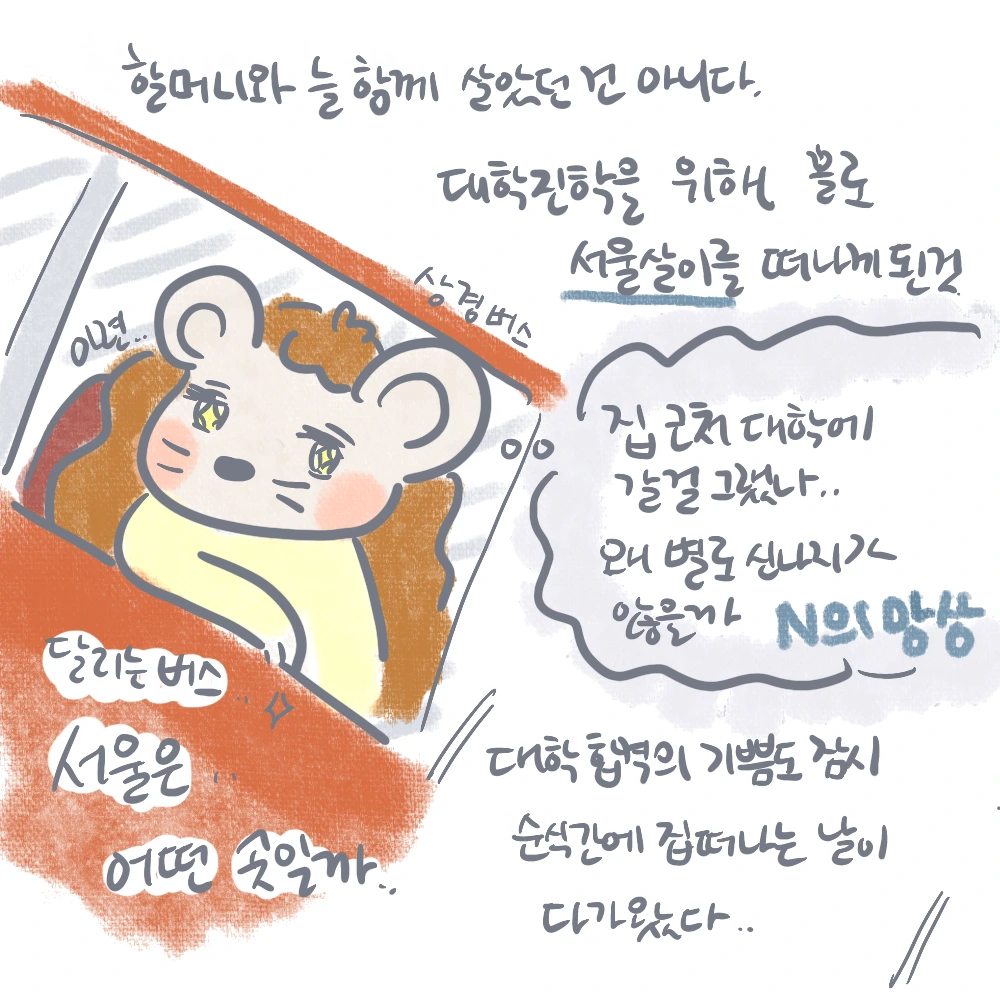 할머니와 늘 함께 살았던 건 아니다.
대학진학을 위해 홀로
서울살이를 떠나게 된 것
상경 버스
아련..
집 근처 대학에
갈걸 그랬나..
왜 별로 신나지가
않을까
N의 망상
달리는 버스..
서울은..
어떤 곳일까..
대학 합격의 기쁨도 잠시
순식간에 집떠나는 날이
다가왔다..